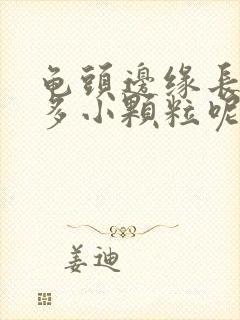 龟頭邊缘長
多小顆粒呢
姜迪